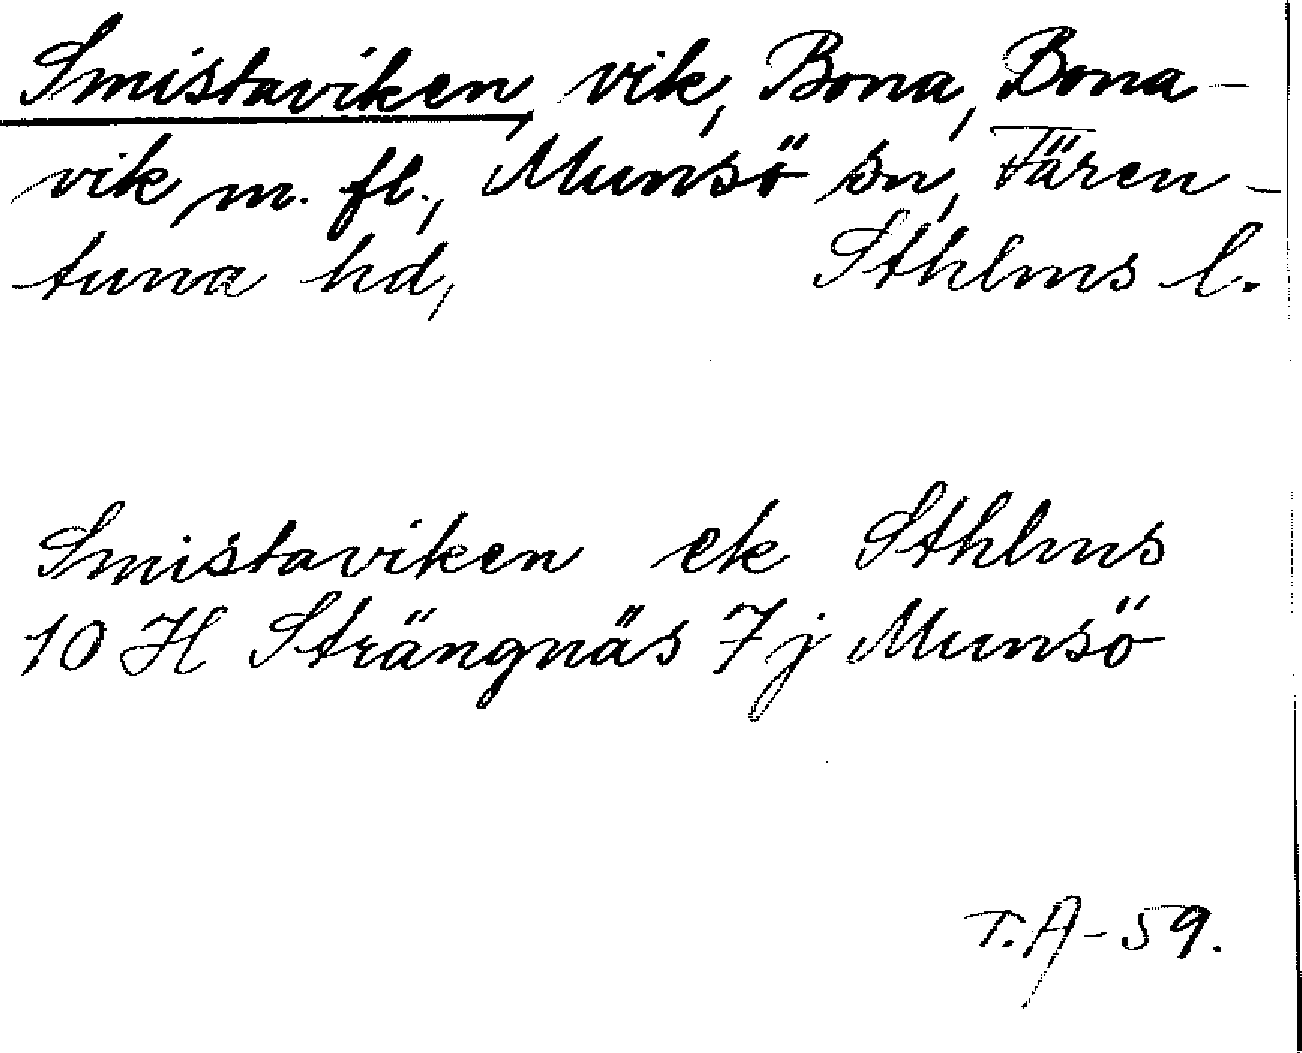 Smistaviken, vik, Bona, Bona-
vik m. fl., Munsö sn, Fären-
tuna hd, Sthlms l.
Smistaviken ek Sthlms
10 H Strängnäs 7j Munsö
T.A-59.